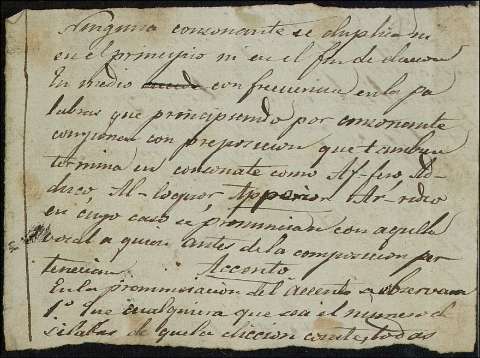 Ninguna consonante se duplica ni
en el principio ni en el fin de diccion
En medio con frecuencia en las pa
labras que principiando por consonante
componen con preposicion que tambien
termina en consonate como Af-fero, Ad-
disco Al-loquor Ar-rideo
en cuyo caso se pronuncian con aquella
vocal a quien antes de la composicion per
tenecian. Accento
En la pronunciacion del accento se observara
1º Que cualquiera que sea el numero de
silabas de que la diccion conste, todas